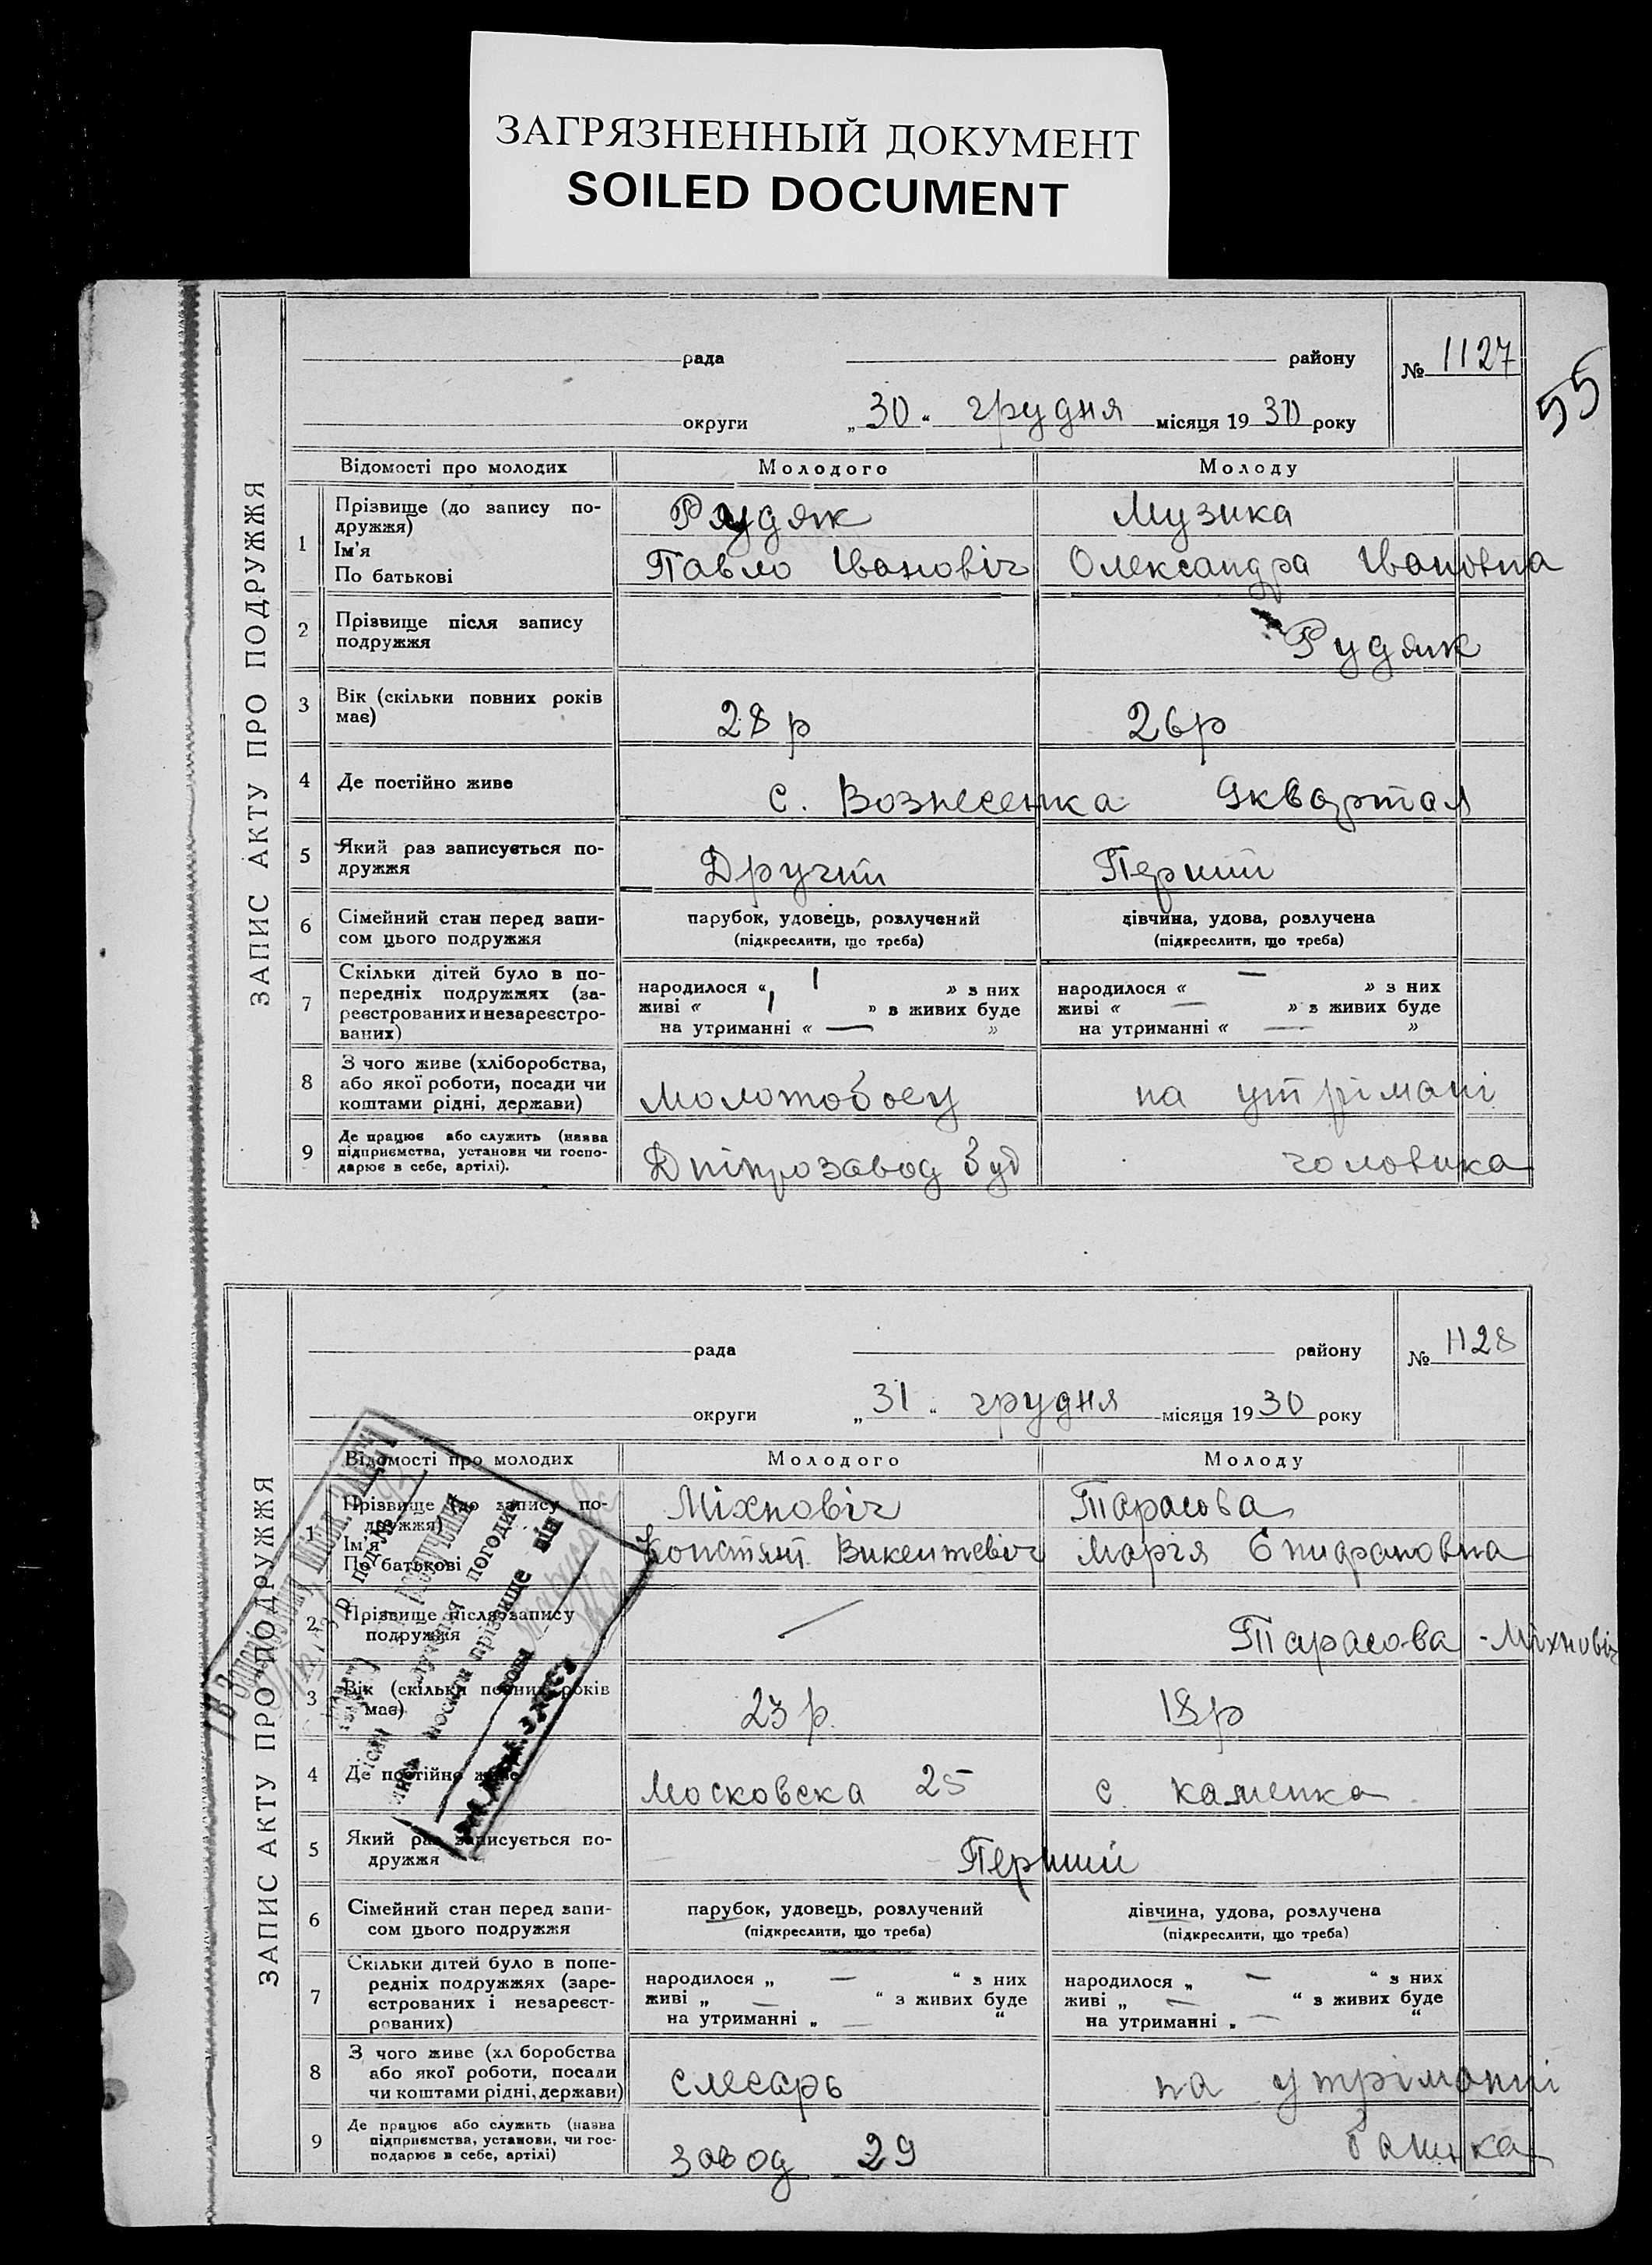 ЗАГРЯЗНЕННЫЙ ДОКУМЕНТ
SOILED DOCUMENT
55
ЗАПИС АКТУ ПРО ПОДРУЖЖЯ
рада району № 1127
округи „ 30 “ грудня місяця 19 30 року
Відомості про молодих Молодого Молоду
1 Прізвище (до запису по-
дружжя) Рудяк Музика
Ім'я
По батькові Павло Івановіч Олександра Івановна
2 Прізвище після запису
подружжя Рудяк
3 Вік (скільки повних років
має) 28 р 26р
4 Де постійно живе с. Вознесенка 9квартал
5 Який раз записується по-
дружжя Другий Перший
6 Сімейний стан перед запи-
сом цього подружжя
парубок, удовець, розлучений
(підкреслити, що треба)
дівчина, удова, розлучена
(підкреслити, що треба)
7 Скільки дітей було в по-
передніх подружжях (за-
реєстрованих и незареєстро-
ваних)
народилося « 1 » з них
живі « 1 » з живих буде
на утриманні « — »
народилося « — » з них
живі « — » з живих буде
на утриманні « — »
8 З чого живе (хліборобства,
або якої роботи, посади чи
коштами рідні, держави)
молотобоєц на утрімані
9 Де працює або служить (назва
підприємства, установи чи госпо-
дарює в себе, артілі).
Дніпрозавод буд чоловика
ЗАПИС АКТУ ПРО ПОДРУЖЖЯ
рада району № 1128
округи „ 31 “ грудня місяця 19 30 року
Відомості про молодих Молодого Молоду
1 Прізвище (до запису по-
дружжя) Міхновіч Тарасова
Ім'я
По батькові Констянт. Викентевіч Марія Епифановна
2 Прізвище після запису
подружжя — Тарасова - Міхновіч
3 Вік (скільки повних років
має) 23 р. 18р
4 Де постійно живе Московска 25 с. Каменка
5 Який раз записується по-
дружжя Перший
6 Сімейний стан перед запи-
сом цього подружжя
парубок, удовець, розлучений
(підкреслити, що треба)
дівчина, удова, розлучена
(підкреслити, що треба)
7 Скільки дітей було в попе-
редніх подружжях (заре-
єстрованих і незареєст-
рованих)
народилося „ — “ з них
живі „ — “ з живих буде
на утриманні „ — “
народилося „ — “ з них
живі „ — “ з живих буде
на утриманні „ — “
8 З чого живе (хл боробства
або якої роботи, посади
чи коштами рідні, держави)
слесарь на утріманні
9 Де працює або служить (назва
підприємства, установи, чи гос-
подарює в себе, артілі)
завод 29 батька
погодив
прізвище він